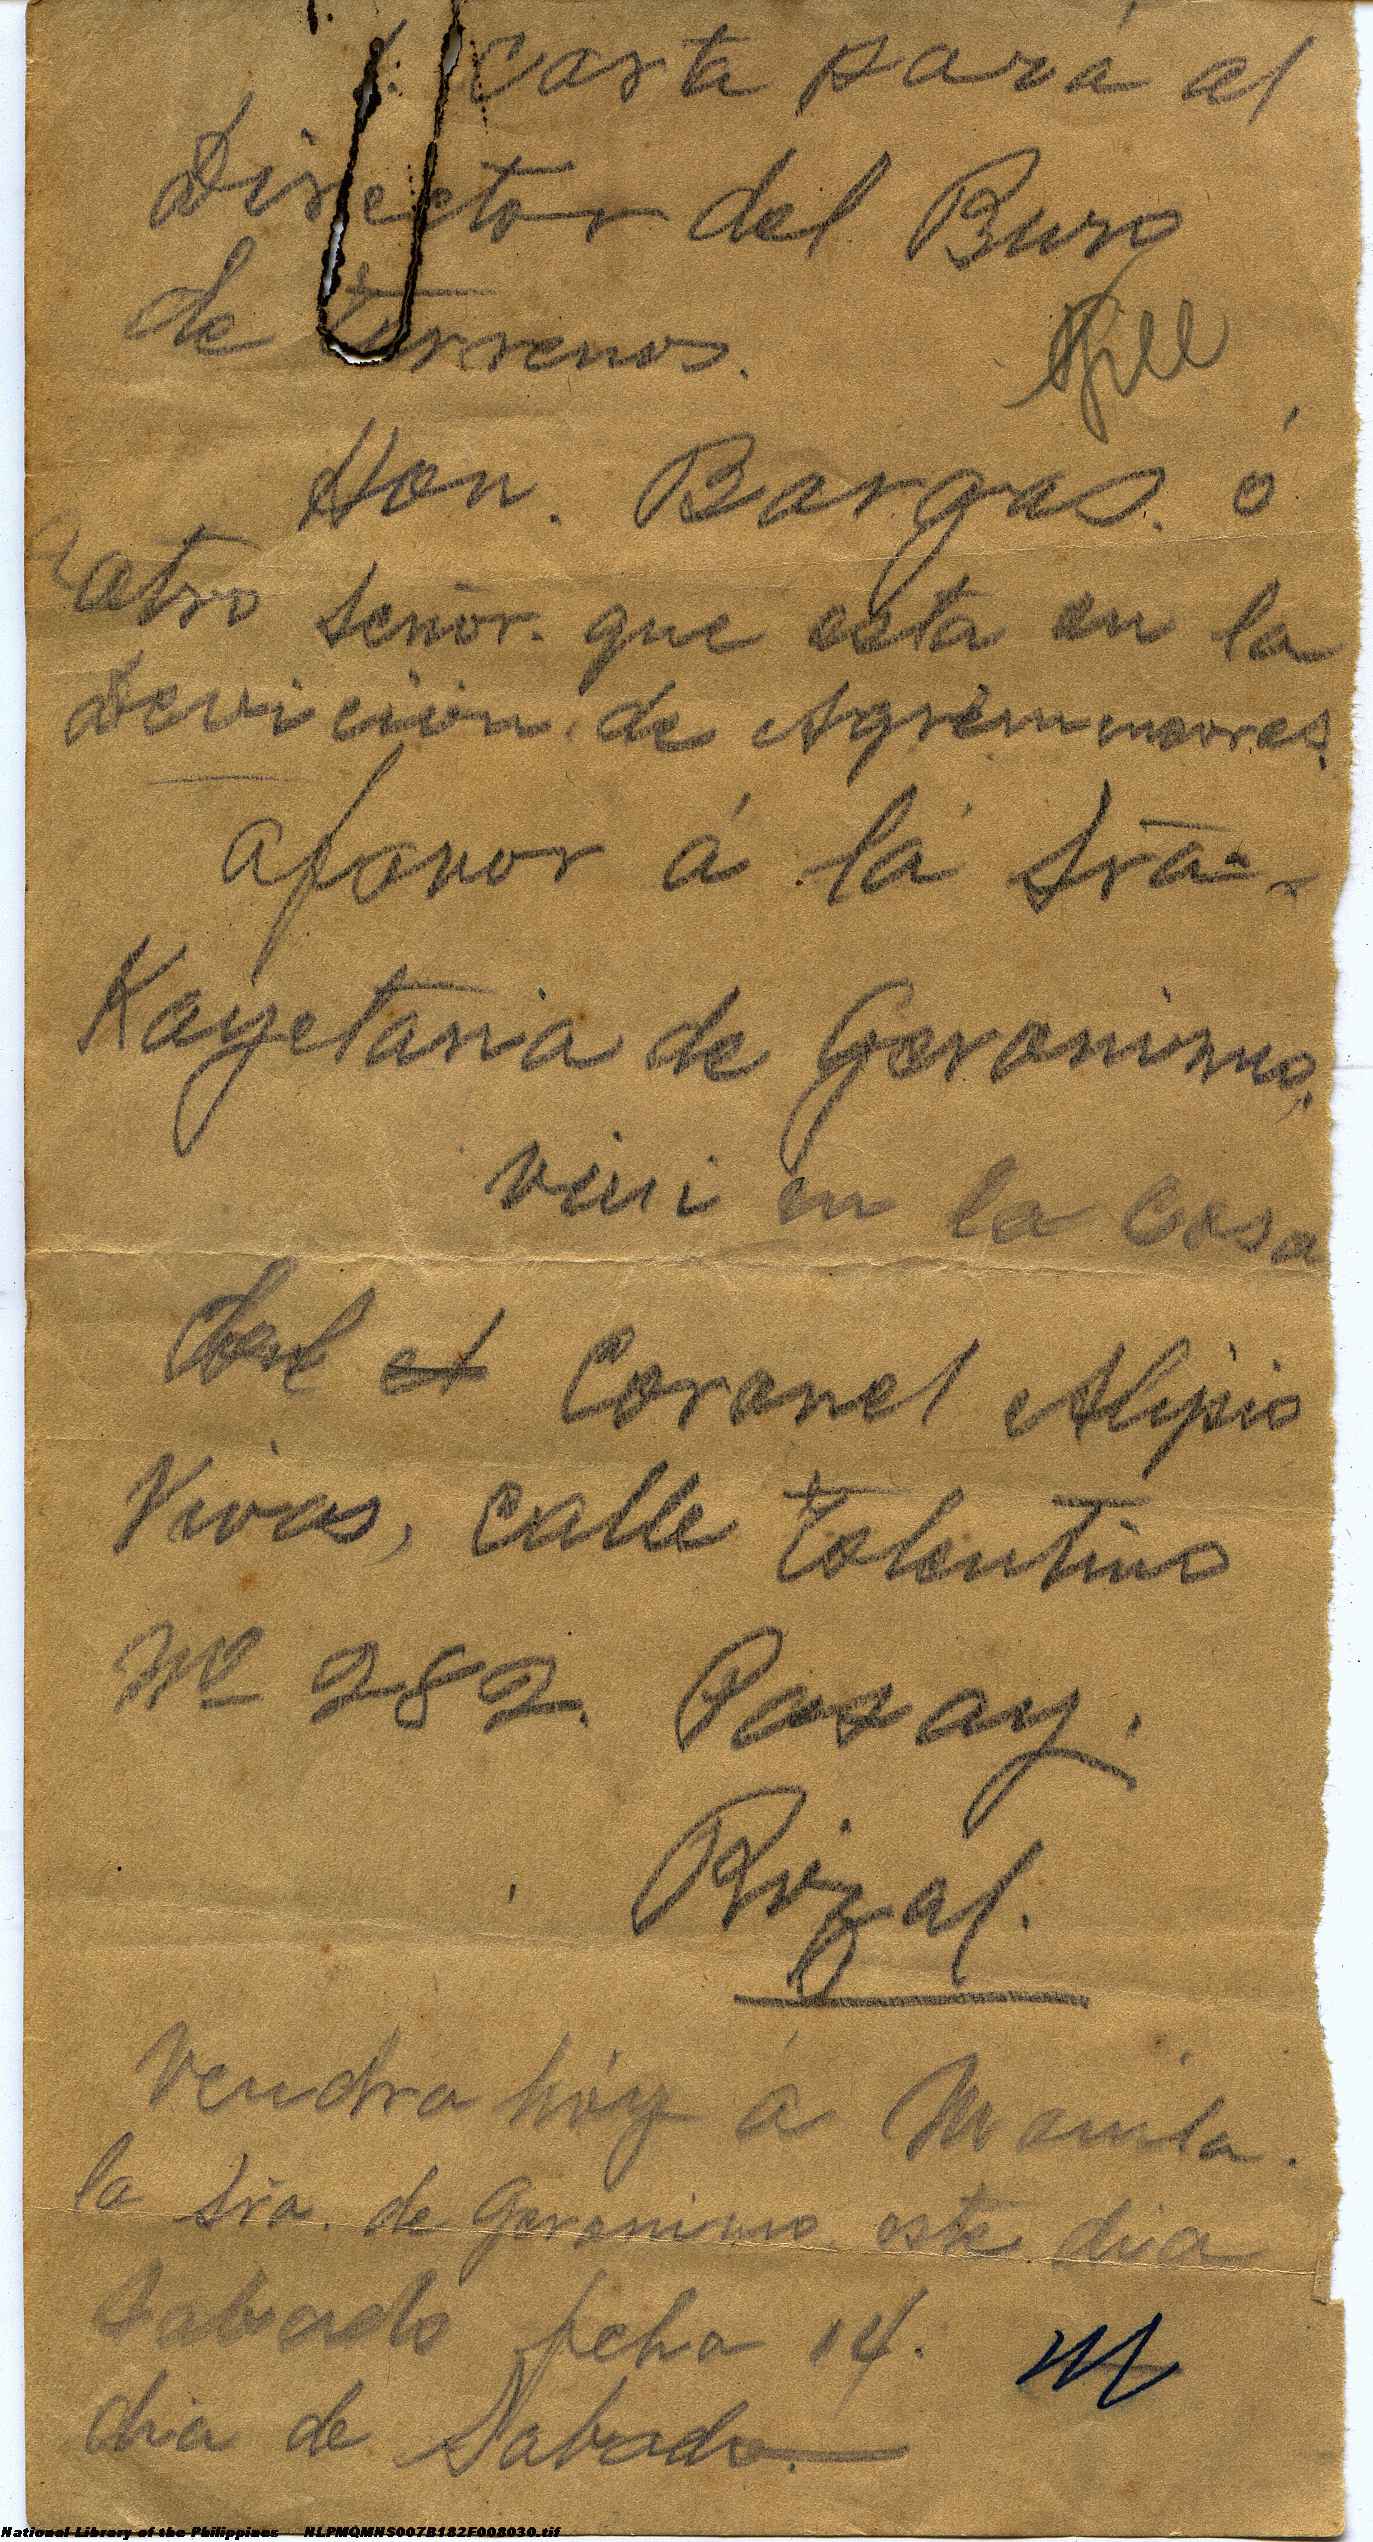 1. Carta para al
Director del Buro
de Terrenos.
Hon. Bargas. ó
otro señor. que esta en la
Devicion. de Agrimmores.
afavor á la Sra.
Kayetana de Geronimo.
vivi en la Casa
del el Coronel Alipio
Vivas, calle Tolentino
No 282. Pasay.
Rizal.
Vendra hóy á Manila.
la Sra. de Geronimo este dia
Sabado fcha 14.
dia de Sabado.
National Library of the Philippines NLPMQMNS007B182F008030.tif